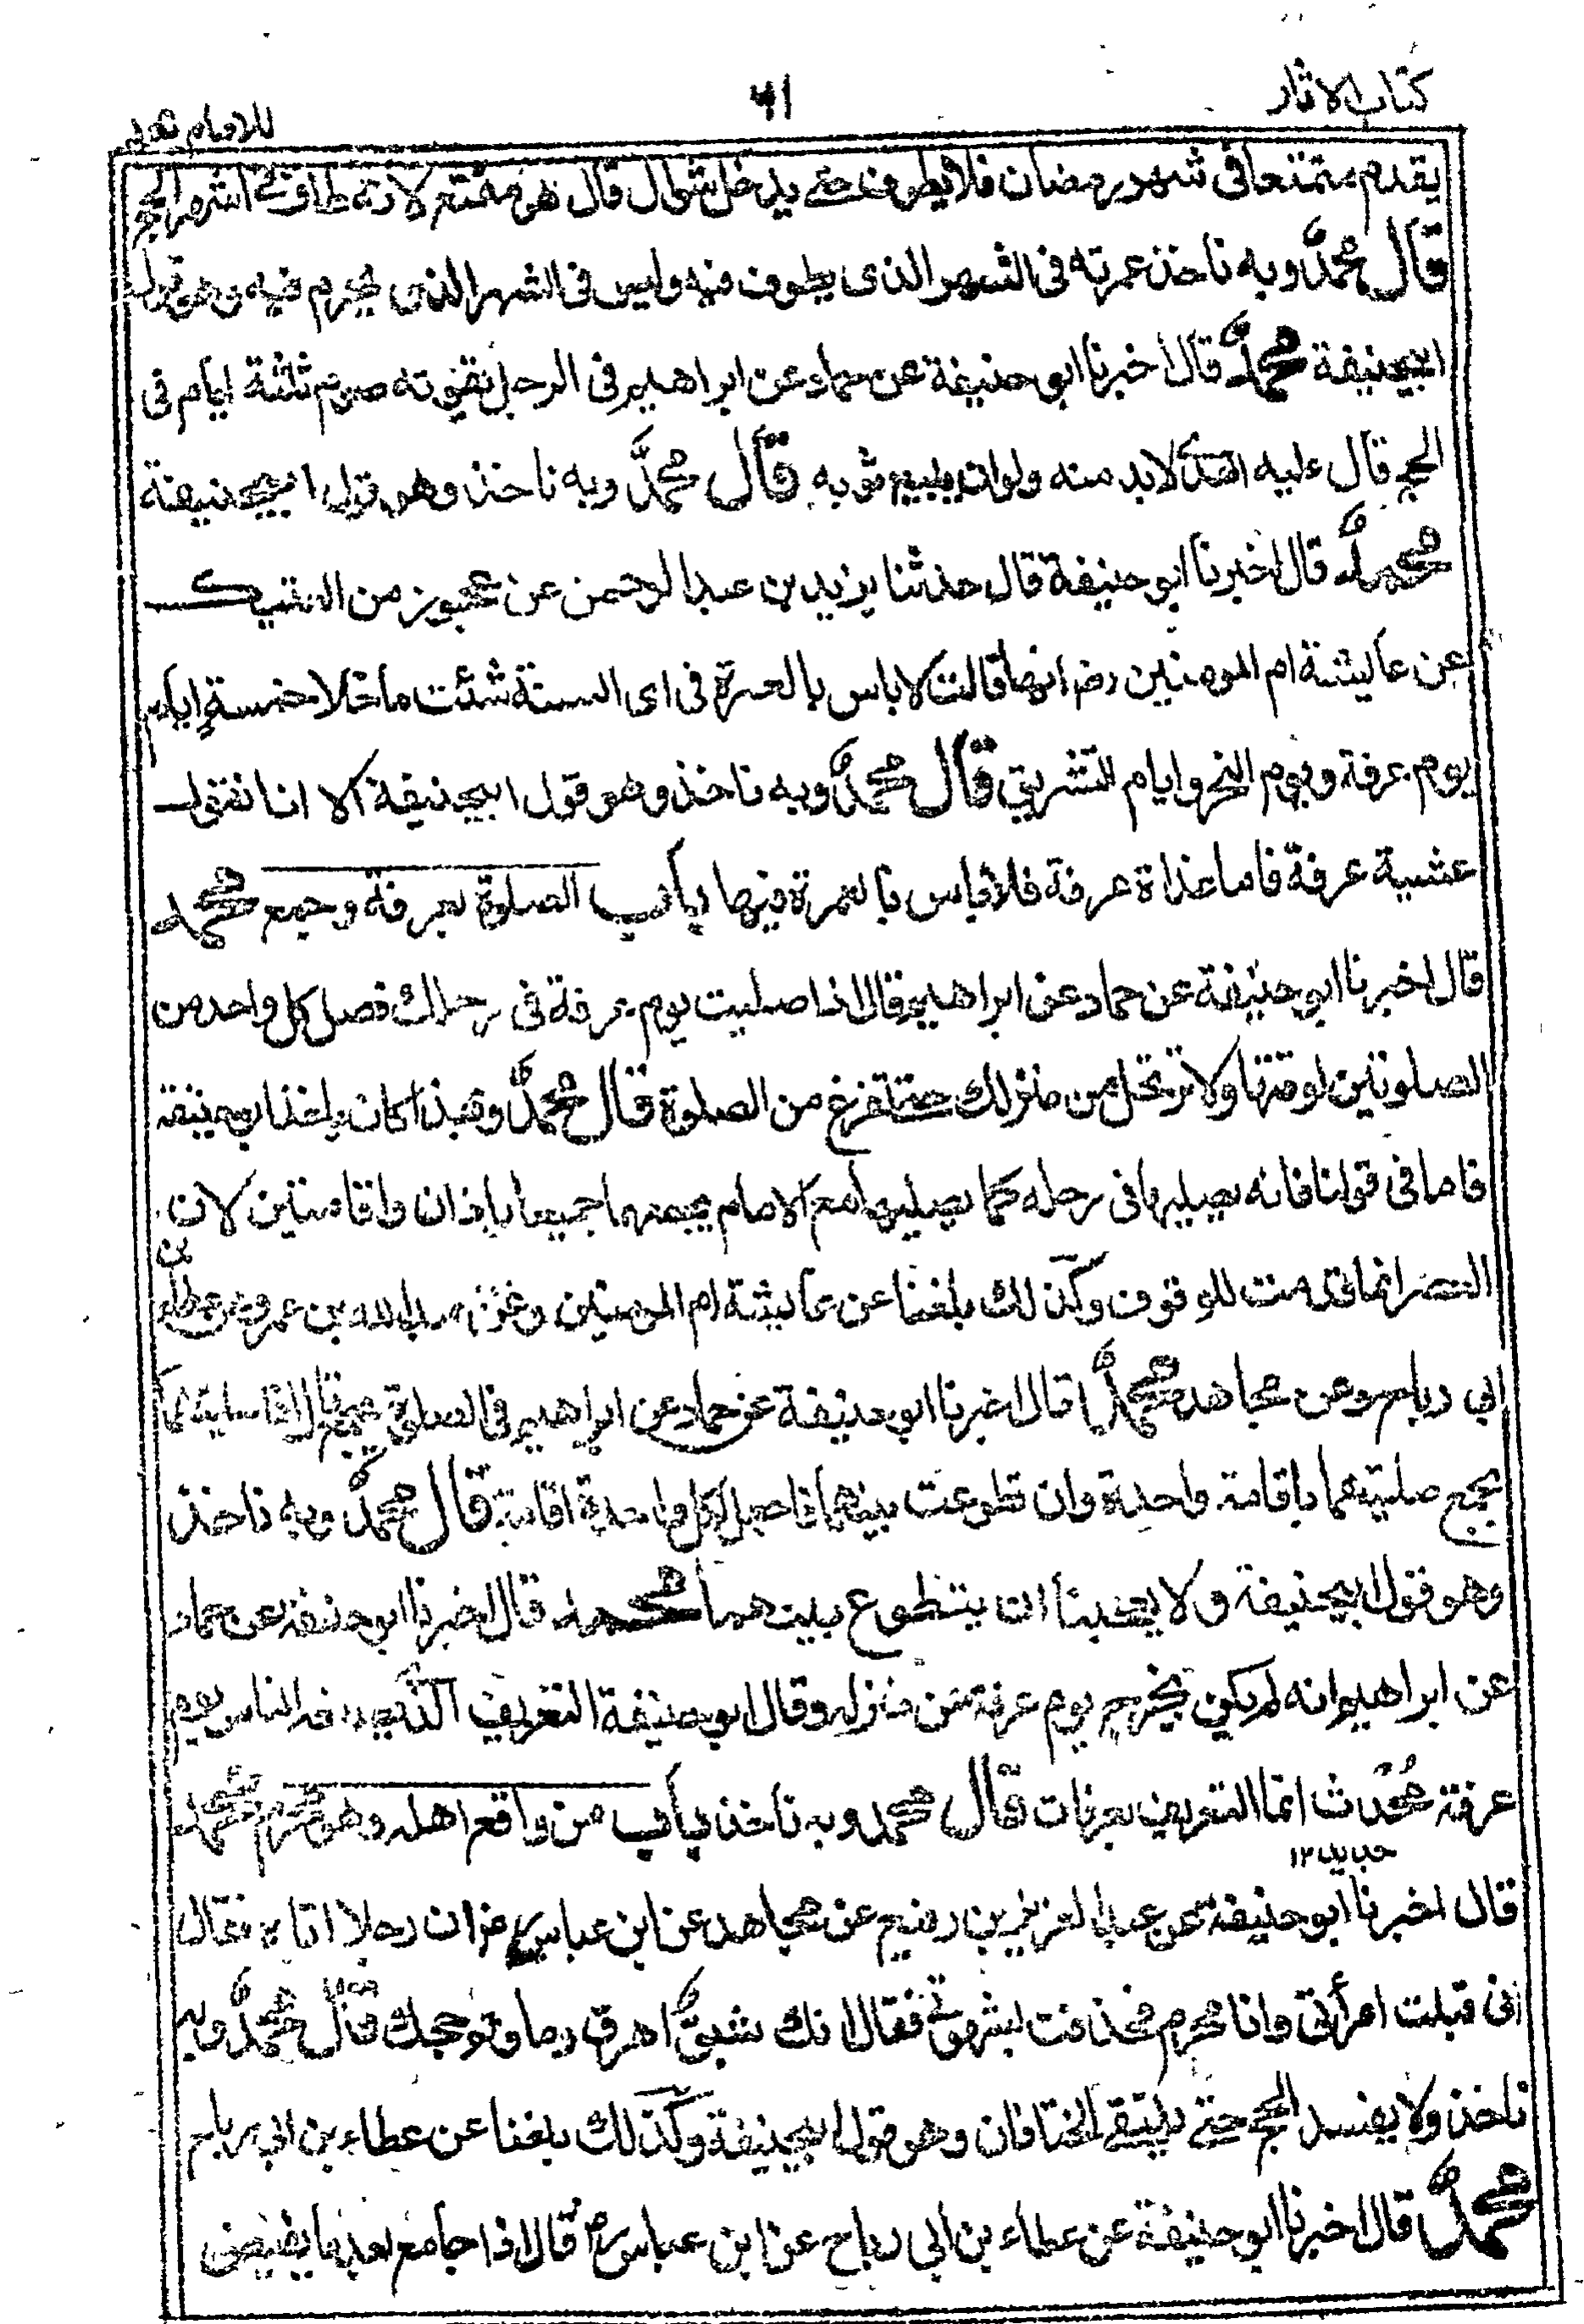 كتاب الاثار
٦١
للامام محمد
يقدم متمتعا فى شهر رمضان فلا يطوف حتى يدخل شوال قال هو متمتع لانه طاف فى اشهر الحج
قال محمد وبه ناخذ عمرته فى الشهر الذى يطوف فيه وليس فى الشهر الذى يحرم فيه وهو قول
ابيحنيفة محمد قال اخبرنا ابو حنيفة عن حماد عن ابراهيم فى الرجل يفوته صوم ثلثة ايام فى
الحج قال عليه الهدى لابد منه ولو ان يبيع ثوبه قال محمد وبه ناخذ وهو قول ابيحنيفة
محمد قال اخبرنا ابو حنيفة قال حدثنا يزيد بن عبد الرحمن عن عجوز من العتيك
عن عايشة ام المومنين رض انها قالت لا باس بالعمرة فى اى السنة شئت ما خلا خمسة ايام
يوم عرفة ويوم النحر وايام التشريق قال محمد وبه ناخذ وهو قول ابيحنيفة الا انا نقول
عشية عرفة فاما غداة عرفة فلا باس بالعمرة فيها باب الصلوة بعرفة وجمع محمد
قال اخبرنا ابو حنيفة عن حماد عن ابراهيم قال اذا صليت يوم عرفة فى رحلك فصل كل واحد من
الصلوتين لوقتها ولا ترتحل من منزلك حتى تفرغ من الصلوة قال محمد وبهذا كان ياخذ ابو حنيفة
فاما فى قولنا فانه يصليها فى رحله كما يصليها مع الامام يجمعهما جميعا باذان واقامتين لان
العصر انما قدمت للوقوف وكذلك بلغنا عن عايشة ام المومنين وعن عبد الله بن عمر وعن عطاء بن
ابى رباح وعن مجاهد محمد قال اخبرنا ابو حنيفة عن حماد عن ابراهيم فى الصلوة بجمع قال اذا صليتهما
بجمع صليتهما باقامة واحدة وان تطوعت بينهما فاجعل لكل واحدة اقامة قال محمد وبه ناخذ
وهو قول ابيحنيفة ولا يعجبنا ان يتطوع بينهما محمد قال اخبرنا ابو حنيفة عن حماد
عن ابراهيم انه لم يكن يخرج يوم عرفة من منزله وقال ابو حنيفة التعريف الذى يصنعه الناس يوم
عرفة محدث انما التعريف بعرفات قال محمد وبه ناخذ باب من واقع اهله وهو محرم محمد
جديد١٢
قال اخبرنا ابو حنيفة عن عبد العزيز بن رفيع عن مجاهد عن ابن عباس رض ان رجلا اتاه فقال
انى قبلت امرأتى وانا محرم فخذفت بشهوتى فقال انك شبق اهرق دما وتم حجك قال محمد وبه
ناخذ ولا يفسد الحج حتى يلتقى الختانان وهو قول ابيحنيفة وكذلك بلغنا عن عطاء بن ابى رباح
محمد قال اخبرنا ابو حنيفة عن عطاء بن ابى رباح عن ابن عباس رض قال اذا جامع بعد ما يفيض